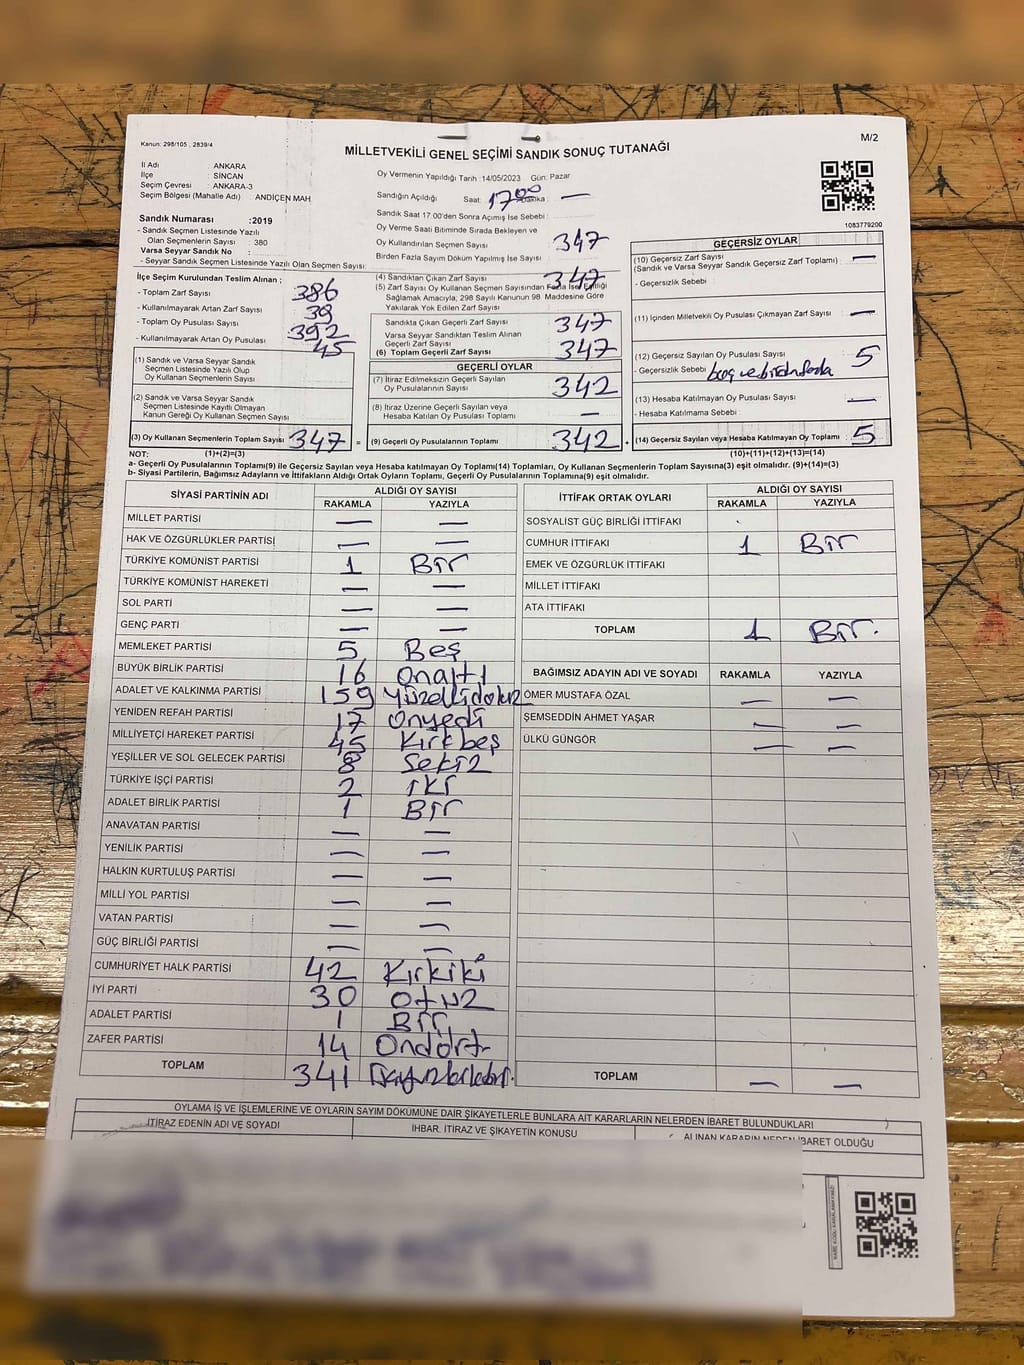 Kanun: 298/105 , 2839/4
M/2
MİLLETVEKİLİ GENEL SEÇİMİ SANDIK SONUÇ TUTANAĞI
İl Adı : ANKARA
İlçe : SİNCAN
Seçim Çevresi : ANKARA-3
Seçim Bölgesi (Mahalle Adı) ANDİÇEN MAH
Sandık Numarası :2019
- Sandık Seçmen Listesinde Yazılı
Olan Seçmenlerin Sayısı : 380
Varsa Seyyar Sandık No :
- Seyyar Sandık Seçmen Listesinde Yazılı Olan Seçmen Sayısı:
İlçe Seçim Kurulundan Teslim Alınan ;
- Toplam Zarf Sayısı : 386
- Kullanılmayarak Artan Zarf Sayısı : 39
- Toplam Oy Pusulası Sayısı : 392
- Kullanılmayarak Artan Oy Pusulası : 45
(1) Sandık ve Varsa Seyyar Sandık
Seçmen Listesinde Yazılı Olup
Oy Kullanan Seçmenlerin Sayısı
(2) Sandık ve Varsa Seyyar Sandık
Seçmen Listesinde Kayıtlı Olmayan
Kanun Gereği Oy Kullanan Seçmen Sayısı
(3) Oy Kullanan Seçmenlerin Toplam Sayısı 347 =
Oy Vermenin Yapıldığı Tarih :14/05/2023 Gün: Pazar
Sandığın Açıldığı Saat: 17 00 Dakika : —
Sandık Saat 17.00'den Sonra Açımış İse Sebebi :
Oy Verme Saati Bitiminde Sırada Bekleyen ve
Oy Kullandırılan Seçmen Sayısı : 347
Birden Fazla Sayım Döküm Yapılmış İse Sayısı :
(4) Sandıktan Çıkan Zarf Sayısı : 347
(5) Zarf Sayısı Oy Kullanan Seçmen Sayısından Fazla İse Eşitliği
Sağlamak Amacıyla; 298 Sayılı Kanunun 98. Maddesine Göre
Yakılarak Yok Edilen Zarf Sayısı :
Sandıkta Çıkan Geçerli Zarf Sayısı : 347
Varsa Seyyar Sandıktan Teslim Alınan
Geçerli Zarf Sayısı :
(6) Toplam Geçerli Zarf Sayısı : 347
GEÇERLİ OYLAR
(7) İtiraz Edilmeksizin Geçerli Sayılan
Oy Pusulalarının Sayısı : 342
(8) İtiraz Üzerine Geçerli Sayılan veya
Hesaba Katılan Oy Pusulası Sayısı : —
(9) Geçerli Oy Pusulalarının Toplamı : 342
1083779200
GEÇERSİZ OYLAR
(10) Geçersiz Zarf Sayısı —
(Sandık ve Varsa Seyyar Sandık Geçersiz Zarf Toplamı) :
- Geçersizlik Sebebi :
(11) İçinden Milletvekili Oy Pusulası Çıkmayan Zarf Sayısı : —
(12) Geçersiz Sayılan Oy Pusulası Sayısı : 5
- Geçersizlik Sebebi : boş ve birden fazla
(13) Hesaba Katılmayan Oy Pusulası Sayısı : —
- Hesaba Katılmama Sebebi :
(14) Geçersiz Sayılan veya Hesaba Katılmayan Oy Toplamı : 5
NOT: (1)+(2)=(3) (10)+(11)+(12)+(13)=(14)
a- Geçerli Oy Pusulalarının Toplamı(9) ile Geçersiz Sayılan veya Hesaba katılmayan Oy Toplamı(14) Toplamları, Oy Kullanan Seçmenlerin Toplam Sayısına(3) eşit olmalıdır. (9)+(14)=(3)
b- Siyasi Partilerin, Bağımsız Adayların ve İttifakların Aldığı Ortak Oyların Toplamı, Geçerli Oy Pusulalarının Toplamına(9) eşit olmalıdır.
SİYASİ PARTİNİN ADI ALDIĞI OY SAYISI
RAKAMLA YAZIYLA
MİLLET PARTİSİ — —
HAK VE ÖZGÜRLÜKLER PARTİSİ — —
TÜRKİYE KOMÜNİST PARTİSİ 1 Bir
TÜRKİYE KOMÜNİST HAREKETİ — —
SOL PARTİ — —
GENÇ PARTİ — —
MEMLEKET PARTİSİ 5 Beş
BÜYÜK BİRLİK PARTİSİ 16 Onaltı
ADALET VE KALKINMA PARTİSİ 159 Yüzellidokuz
YENİDEN REFAH PARTİSİ 17 Onyedi
MİLLİYETÇİ HAREKET PARTİSİ 45 Kırkbeş
YEŞİLLER VE SOL GELECEK PARTİSİ 8 Sekiz
TÜRKİYE İŞÇİ PARTİSİ 2 İki
ADALET BİRLİK PARTİSİ 1 Bir
ANAVATAN PARTİSİ — —
YENİLİK PARTİSİ — —
HALKIN KURTULUŞ PARTİSİ — —
MİLLİ YOL PARTİSİ — —
VATAN PARTİSİ — —
GÜÇ BİRLİĞİ PARTİSİ — —
CUMHURİYET HALK PARTİSİ 42 Kırkiki
İYİ PARTİ 30 Otuz
ADALET PARTİSİ 1 Bir
ZAFER PARTİSİ 14 Ondört
TOPLAM 341
İTTİFAK ORTAK OYLARI ALDIĞI OY SAYISI
RAKAMLA YAZIYLA
SOSYALİST GÜÇ BİRLİĞİ İTTİFAKI
CUMHUR İTTİFAKI 1 Bir
EMEK VE ÖZGÜRLÜK İTTİFAKI
MİLLET İTTİFAKI
ATA İTTİFAKI
TOPLAM 1 Bir.
BAĞIMSIZ ADAYIN ADI VE SOYADI RAKAMLA YAZIYLA
ÖMER MUSTAFA ÖZAL — —
ŞEMSEDDİN AHMET YAŞAR — —
ÜLKÜ GÜNGÖR — —
TOPLAM — —
OYLAMA İŞ VE İŞLEMLERİNE VE OYLARIN SAYIM DÖKÜMÜNE DAİR ŞİKAYETLERLE BUNLARA AİT KARARLARIN NELERDEN İBARET BULUNDUKLARI
İTİRAZ EDENİN ADI VE SOYADI İHBAR, İTİRAZ VE ŞİKAYETİN KONUSU ALINAN KARARIN NEDEN İBARET OLDUĞU